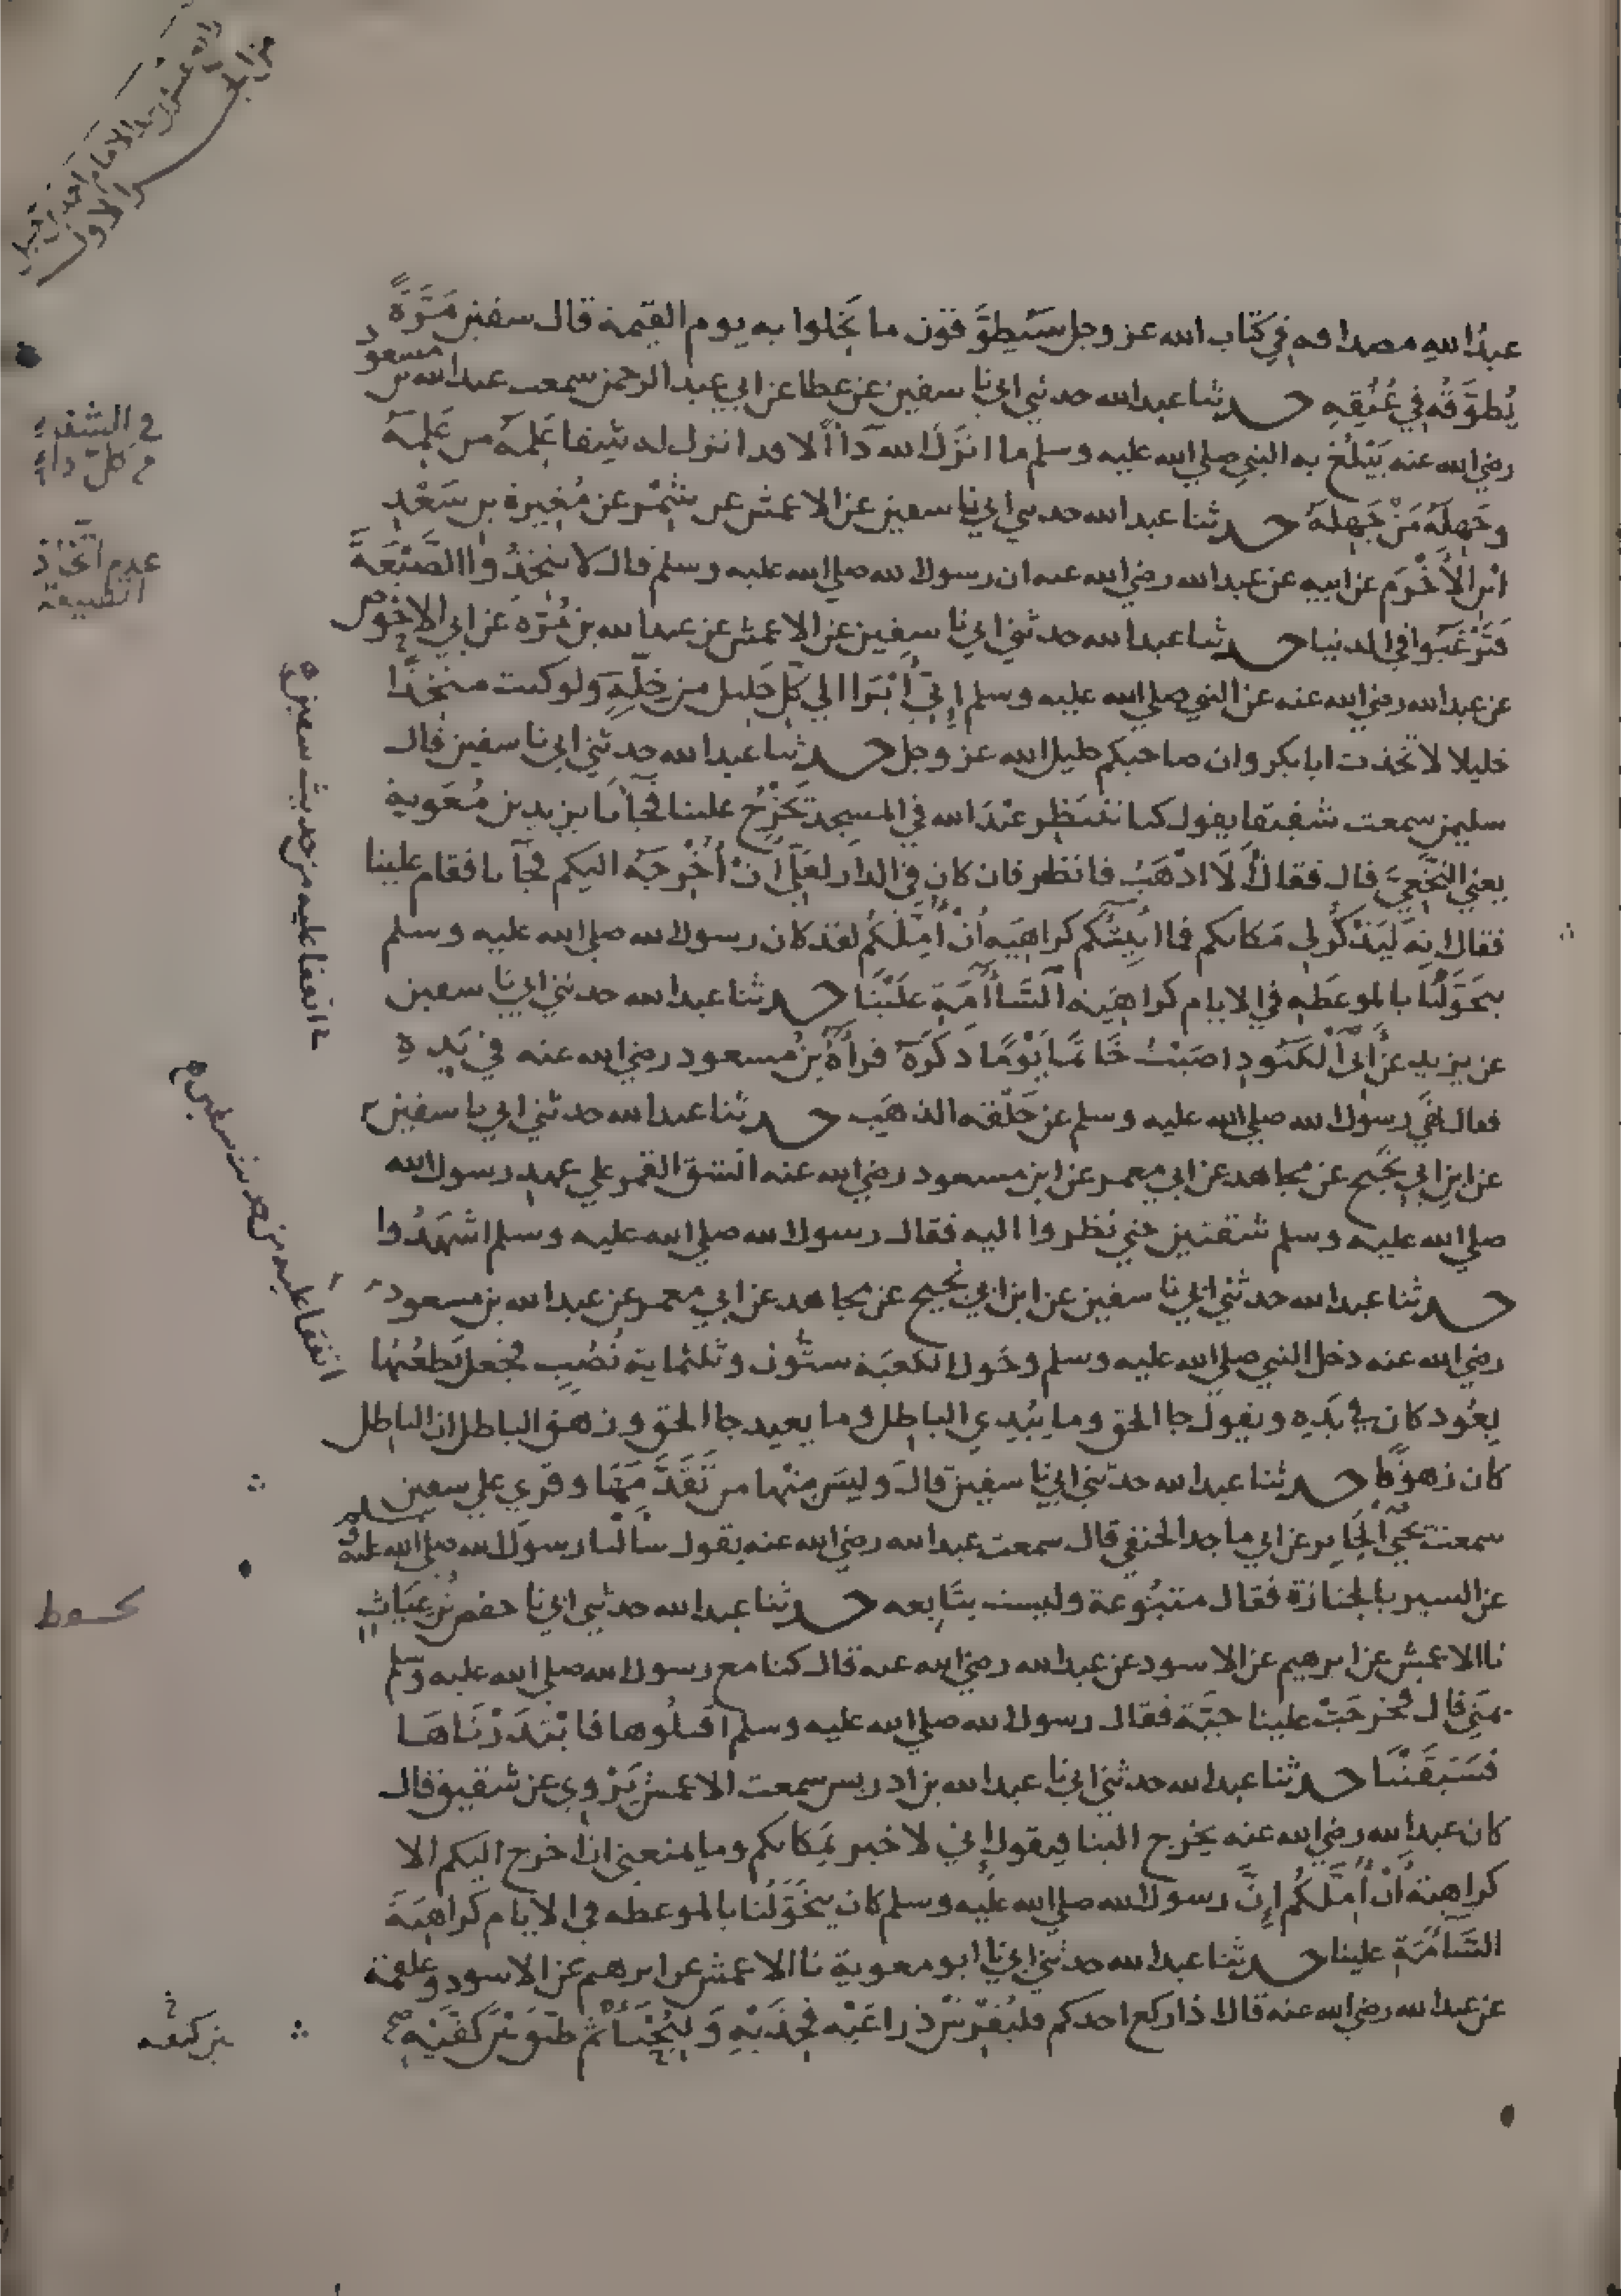 عبدُ اللهِ مصداقه في كتاب الله عز وجل سَيُطوَّقون ما بَخلوا به يوم القيمة قال سفين مَرَّةً
يُطوَّقُه في عُنُقِهِ حدثنا عبد الله حدثني ابي نا سفين عن عطا عن ابي عبد الرحمن سمعت عبد الله بن مسعود
رضي الله عنه يَبْلُغ به النبي صلي الله عليه وسلم ما انزَلَ الله دآا الا وقد انزل له شفا عَلِمَهُ من عَلِمَهُ
وجَهِلَهُ مَنْ جَهِلَهُ حدثنا عبد الله حدثني ابي نا سفين عن الاعمش عن شِمْر عن مُغيرة بن سَعْدِ
ابن الأَخْرَم عن ابيه عن عبد الله رضي الله عنه ان رسول الله صلي الله عليه وسلم قال لا تتخِذُوا الضَّيْعَةَ
فَتَرْغَبُوا في الدنيا حدثنا عبد الله حدثني ابي نا سفين عن الاعمش عن عبد الله بن مُرَّة عن ابي الاحوص
عن عبد الله رضي الله عنه عن النبي صلي الله عليه وسلم إِنِّي أَبْرَا الي كُلِّ خليل من خُلَّتِهِ ولو كنت متخِذًا
خليلا لاتخذت ابا بكر وان صاحبكم خليل الله عز وجل حدثنا عبد الله حدثني ابي نا سفين قال
سليمن سمعت شقيقا يقول كنا ننتظر عبْدَ الله في المسجد يَخْرُجُ علينا فجآنا يزيد بن مُعَوية
يعني النَّخَعِيَّ قال فقال أَلَا اذْهَبُ فانظر فان كان في الدار لعَلِّي أَنْ أُخْرِجَهُ اليكم فجآنا فقام علينا
فقال إنه لَيُذْكَرُ لي مَكانكم فما اتيتُكم كراهِيَه أَنْ أُمِلَّكُم لقد كان رسول الله صلي الله عليه وسلم
يتخَوَّلُنا بالموعظه في الايام كراهِيَه السَّاآمَةِ علَيْنا حدثنا عبد الله حدثني ابي نا سفين
عن يزيد عن أَبي الكَنُودِ اصَبْتُ خَاتمًا يَوْمًا ذَكَرَهُ فرآهُ بنُ مسعود رضي الله عنه في يَدِهِ
فقال نهَي رسول الله صلي الله عليه وسلم عن حَلْقه الذهَبِ حدثنا عبد الله حدثني ابي نا سفين
عن ابن ابي نَجيح عن مجاهد عن ابي معمر عن ابن مسعود رضي الله عنه انشق القمر علي عهد رسول الله
صلي الله عليه وسلم شقتين حتي نظروا اليه فقال رسول الله صلي الله عليه وسلم اشْهَدُوا
حدثنا عبد الله حدثني ابي نا سفين عن ابن ابي نجيح عن مجاهد عن ابي معمر عن عبد الله بن مسعود
رضي الله عنه دخل النبي صلي الله عليه وسلم وحَول الكعبَة ستُّون وثلثماية نُصُبٍ فجعل يَطعُنُها
بعُود كان في يَدِه ويقول جا الحق وما يُبْدِي الباطِل وما يعيد جا الحق وزهق الباطل ان الباطِل
كان زهوقًا حدثنا عبد الله حدثني ابي نا سفين قالَ وليسَ منْها من تَقَدَّمَهَا وقُرِي علي سفين
سمعت يحيَي الجابر عن ابي ماجد الحنفي قال سمعت عبد الله رضي الله عنه يقول سالنا رسول الله صلي الله عليه وسلم
عن السير بالجنازة فقال متبُوعة وليست بتَابِعه حدثنا عبد الله حدثني ابي نا حفص بنُ غِيَاثٍ
نا الاعمش عن ابرهيم عن الاسود عن عبد الله رضي الله عنه قال كنا مع رسول الله صلي الله عليه وسلم
بمنَي قال فخرجَتْ علينا حيَّة فقال رسول الله صلي الله عليه وسلم اقتلُوها فابْتَدَرْنَاهَا
فسَبَقَتْنَا حدثنا عبد الله حدثني ابي نا عبد الله بن ادريس سمعت الاعمش يَرْوِي عن شقيق قال
كان عبد الله رضي الله عنه يخرج الينا فيقول إِني لاخبر بمَكانكم وما يمنعني ان اخرج اليكم الا
كراهيةُ أَنْ أُمِلَّكُم إِنَّ رسول الله صلي الله عليه وسلم كان يتخَوَّلُنا بالموعظه في الايام كراهِيَةَ
السَّآمَةِ علينا حدثنا عبد الله حدثني ابي نا ابو معوية نا الاعمش عن ابرهيم عن الاسود وعلقمة
عن عبد الله رضي الله عنه قال اذا ركع احدكم فليُفرِش ذراعَيْه فخِذَيْهِ وَليَحْنَأْ ثم طبَّق بَيْنَ كفَّيْهِ
في الشفا
من كل داء
عدم اتخاذ
الضيعة
اتفقا عليه من حديث سفين
اتفقا عليه من حديث سفين
بين كفيه